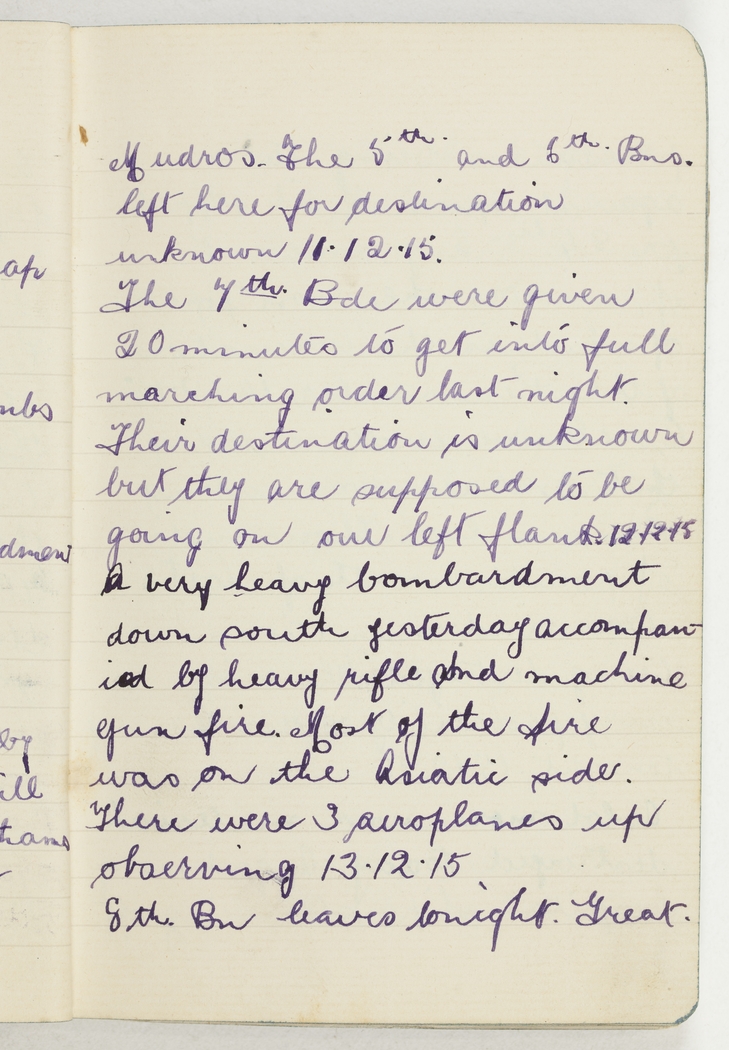 Mudros. The 5th. and 6th. Bns.
left here for destination
unknown 11.12.15.
The 7th. Bde were given
20 minutes to get into full
marching order last night.
Their destination is unknown
but they are supposed to be
going on our left flank. 12.12.15
A very heavy bombardment
down south yesterday accompan-
ied by heavy rifle and machine
gun fire. Most of the fire
was on the Asiatic side.
There were 3 aeroplanes up
observing 13.12.15
8th. Bn leaves tonight. Great.